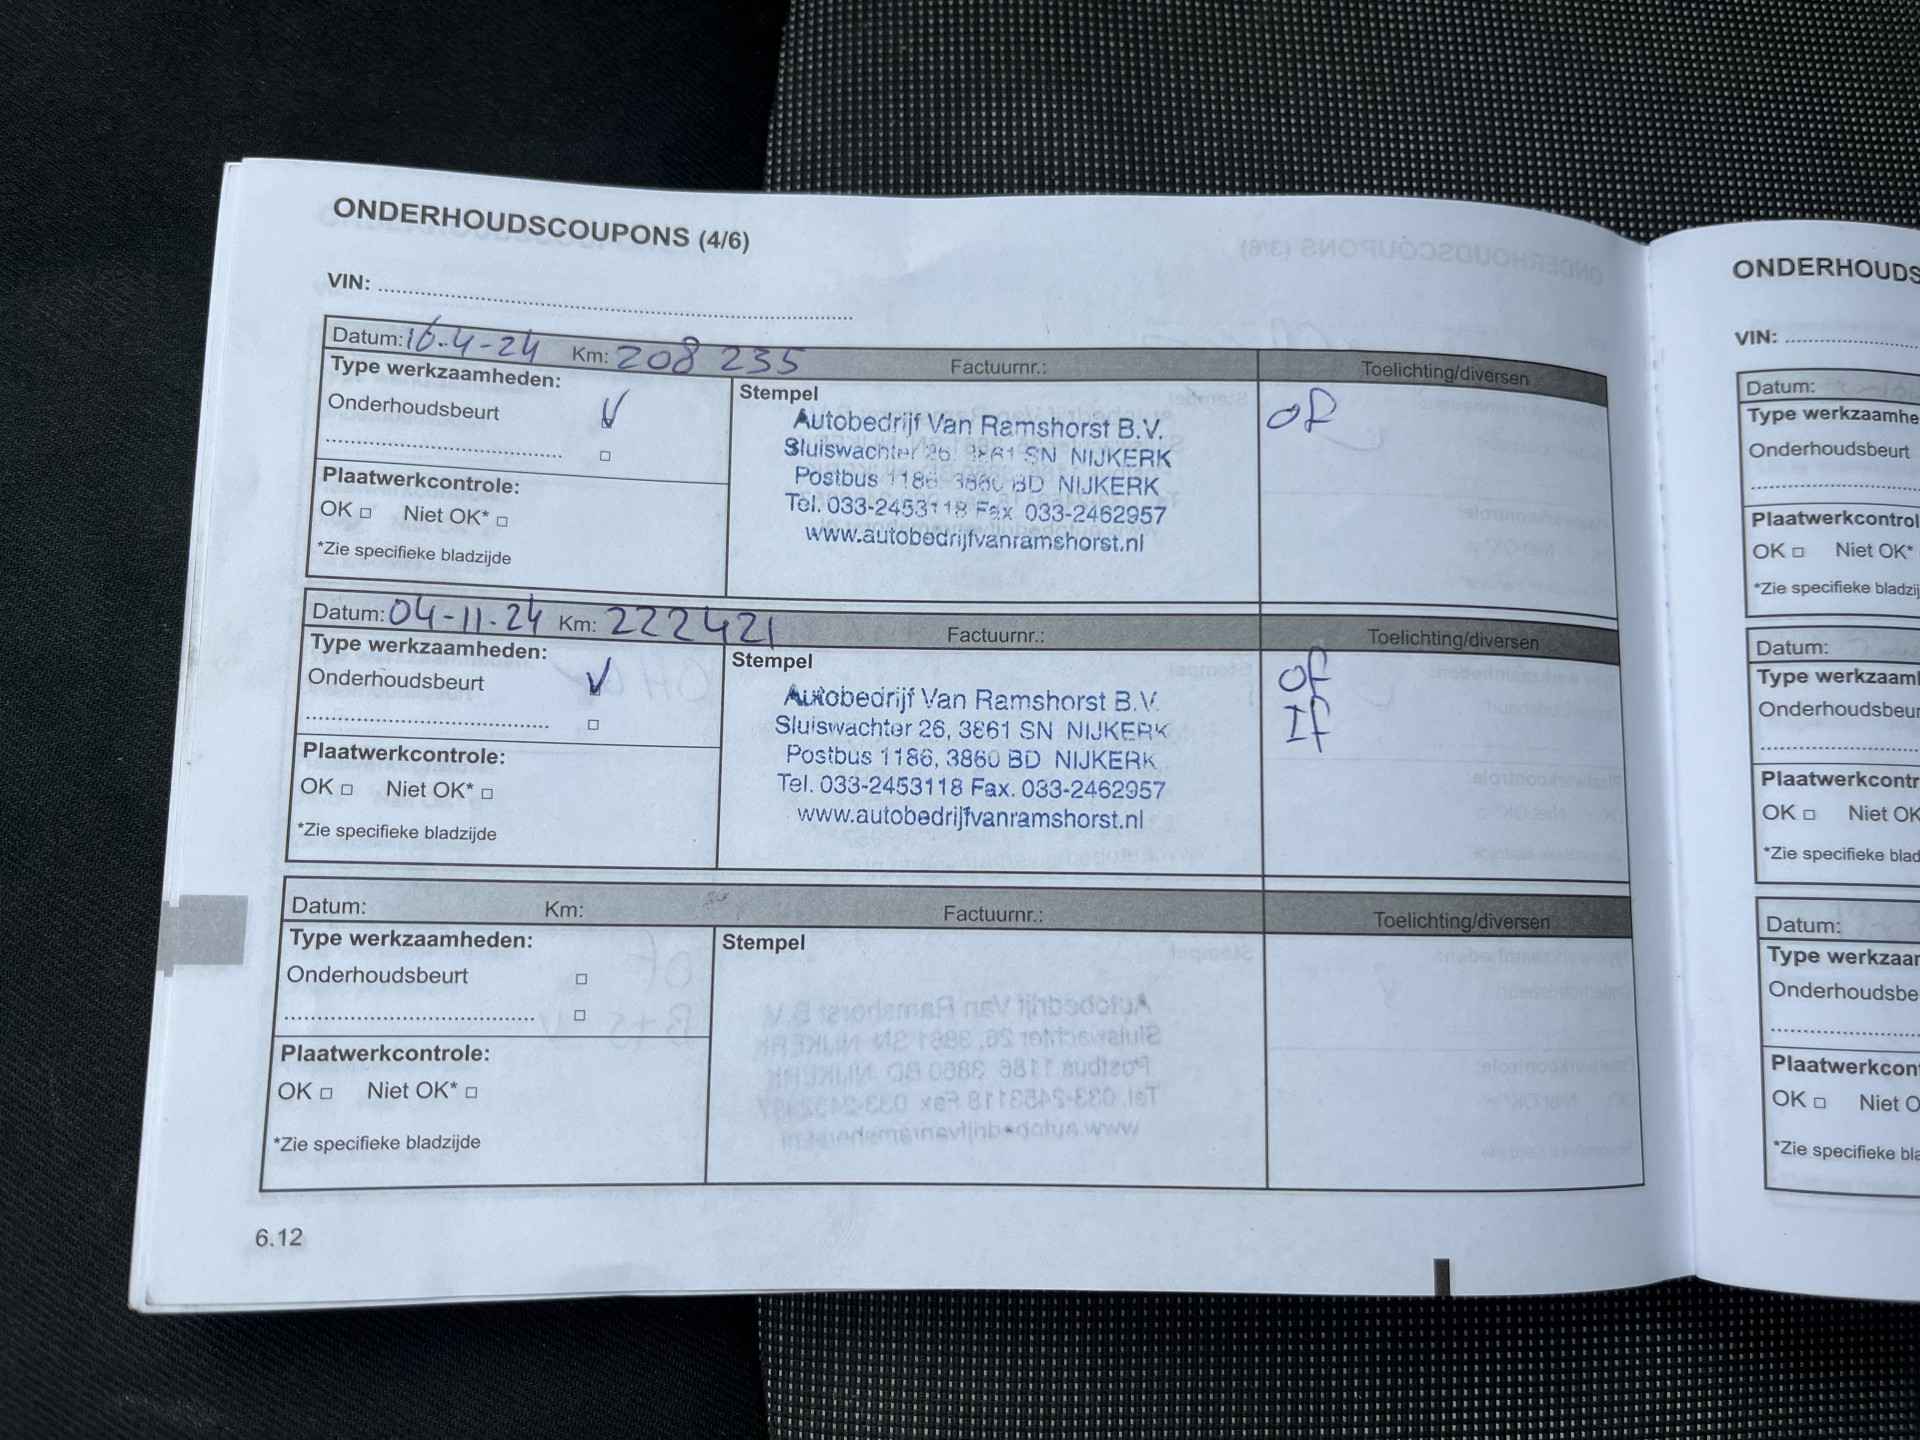 ONDERHOUDSCOUPONS (4/6)
VIN:
Datum: 16-4-24 Km: 208 235 Factuurnr.: Toelichting/diversen
Type werkzaamheden:
Onderhoudsbeurt
Stempel
Autobedrijf Van Ramshorst B.V.
Sluiswachter 26, 3861 SN NIJKERK
Postbus 1186, 3860 BD NIJKERK
Tel. 033-2453118 Fax 033-2462957
www.autobedrijfvanramshorst.nl
OF
Plaatwerkcontrole:
OK Niet OK*
*Zie specifieke bladzijde
Datum: 04-11-24 Km: 222421 Factuurnr.: Toelichting/diversen
Type werkzaamheden:
Onderhoudsbeurt
Stempel
Autobedrijf Van Ramshorst B.V.
Sluiswachter 26, 3861 SN NIJKERK
Postbus 1186, 3860 BD NIJKERK
Tel. 033-2453118 Fax. 033-2462957
www.autobedrijfvanramshorst.nl
OF
IF
Plaatwerkcontrole:
OK Niet OK*
*Zie specifieke bladzijde
Datum: Km: Factuurnr.: Toelichting/diversen
Type werkzaamheden:
Onderhoudsbeurt
Stempel
Plaatwerkcontrole:
OK Niet OK*
*Zie specifieke bladzijde
6.12
ONDERHOUDS
VIN:
Datum:
Type werkzaamhe
Onderhoudsbeurt
Plaatwerkcontrol
OK Niet OK*
*Zie specifieke bladzij
Datum:
Type werkzaaml
Onderhoudsbeur
Plaatwerkcontr
OK Niet OK
*Zie specifieke blad
Datum:
Type werkzaar
Onderhoudsbe
Plaatwerkcon
OK Niet O
*Zie specifieke bla